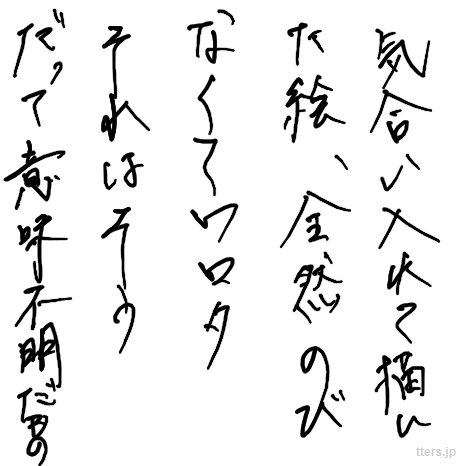 気合い入れて描い
た絵、全然のび
なくてワロタ
それはそう
だって意味不明だもの
tters.jp